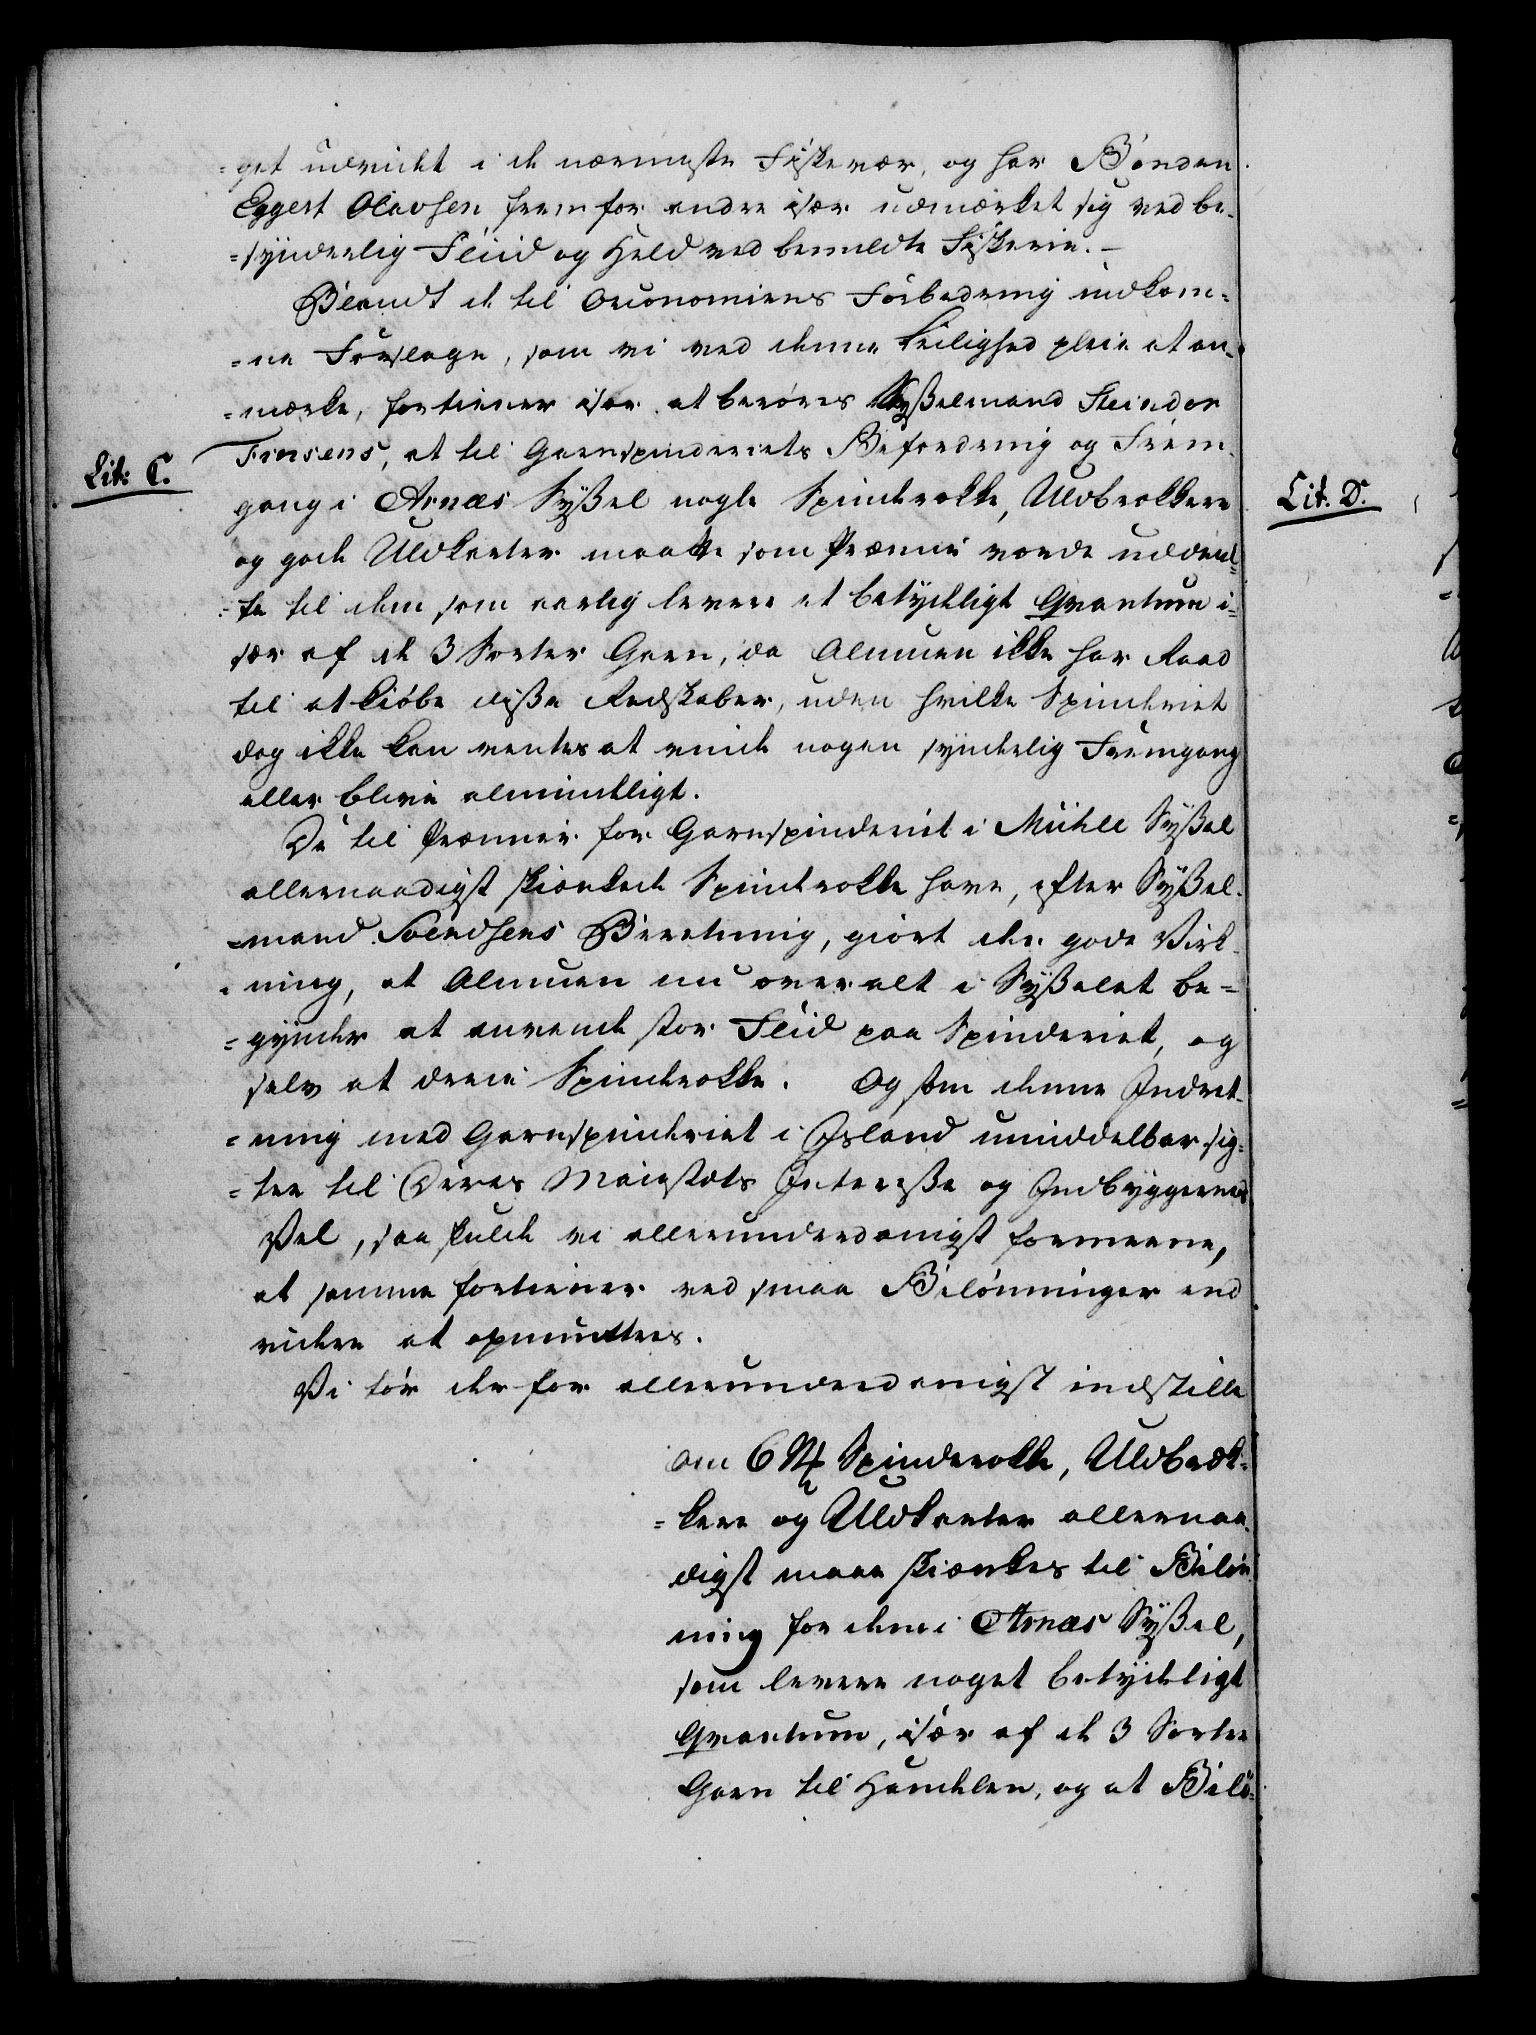 =get udvidet i de nærmeste Fiskevær, og har Bonden
Eggert Olavsen frem for andre især udmærket sig ved be-
=synderlig Fliid og Held ved bemeldte Fiskerie.-
Blandt de til Oeconomiens Forbedring indkom=
=ne Forslage, som vi ved denne Leilighed pleie at an-
=mærke, fortiener især at berøres Sysselmand Steindor
Finsens, at til Garnspinderiets Befordring og Frem-
Lit: C.
gang i Arnæs Syssel nogle Spinderokke, Uldbrækkere
Lit. D.
og gode Uldkarter maatte som Præmie vorde uddeel-
=te til dem som aarlig levere et betydeligt Qvantum i=
sær af de 3 Sorter Garn, da Almuen ikke har Raad
til at kiøbe disse Redskaber, uden hvilke Spinderiet
dog ikke kan ventes at vinde nogen synderlig Fremgang
eller blive almindeligt.
De til Præmier for Garnspinderiet i Mühle Syssel
allernaadigst skienkede Spinderokke have, efter Syssel-
=mand Svendsens Beretning, giort den gode Virk-
=ning, at Almuen nu overalt i Sysselet be=
=gynder at anvende stor Fliid paa Spinderiet, og
selv at dreie Spinderokke. Og som denne Indret-
=ning med Garnspinderiet i Island umiddelbar sig=
=ter til Deres Maiestæts Interesse og Indbyggernes
Vel, saa skulde vi allerunderdanigst formeene,
at samme fortiener ved smaa Belønninger end
videre at opmuntres.
Vi tør derfor allerunderdanigst indstille
om 6 Spinderokke, Uldbræk=
=kere og Uldkarter allernaa-
digst maae skienkes til Beløn
ning for dem i Arnæs Syssel,
som levere noget betydeligt
Qvantum, især af de 3 Sorter
Garn til Handelen, og at Belø=